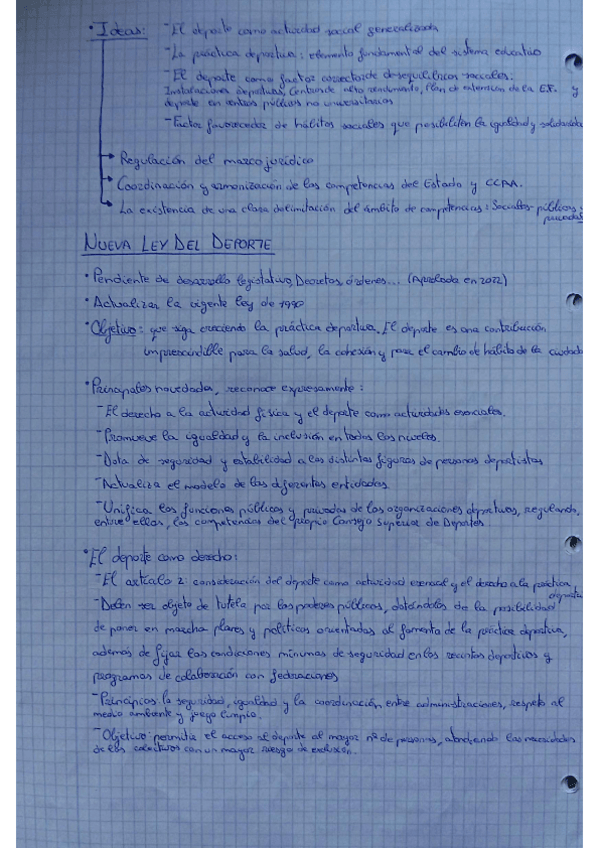 • Ideas: - El deporte como actividad social generalizada
- La práctica deportiva: elemento fundamental del sistema educativo
- El deporte como factor corrector de desequilibrios sociales:
Instalaciones deportivas, Centros de alto rendimiento, Plan de extensión de la E.F. y
deporte en centros públicos no universitarios
- Factor favorecedor de hábitos sociales que posibiliten la igualdad y solidaridad
→ Regulación del marco jurídico
→ Coordinación y armonización de las competencias del Estado y CCAA.
→ La existencia de una clara delimitación del ámbito de competencias: Sociales-públicas y
privadas
NUEVA LEY DEL DEPORTE
• Pendiente de desarrollo legislativo, Decretos, órdenes... (Aprobada en 2022)
• Actualizar la vigente ley de 1990
• Objetivo: que siga creciendo la práctica deportiva. El deporte es una contribución
imprescindible para la salud, la cohesión y para el cambio de hábito de la ciudada
• Principales novedades, reconoce expresamente:
- El derecho a la actividad física y el deporte como actividades esenciales.
- Promueve la igualdad y la inclusión en todos los niveles.
- Dota de seguridad y estabilidad a las distintas figuras de personas deportistas
- Actualiza el modelo de las diferentes entidades.
- Unifica las funciones públicas y privadas de las organizaciones deportivas, regulando,
entre ellas, las competencias del propio Consejo Superior de Deportes
• El deporte como derecho:
- El artículo 2: consideración del deporte como actividad esencial y el derecho a la práctica
deporti
- Deben ser objeto de tutela por los poderes públicos, dotándolos de la posibilidad
de poner en marcha planes y políticas orientadas al fomento de la práctica deportiva,
además de fijar las condiciones mínimas de seguridad en los recintos deportivos y
programas de colaboración con federaciones
- Principios: la seguridad, igualdad y la coordinación entre administraciones, respeto al
medio ambiente y juego limpio.
- Objetivo: permitir el acceso al deporte al mayor nº de personas, atendiendo las necesidades
de los colectivos con un mayor riesgo de exclusión.